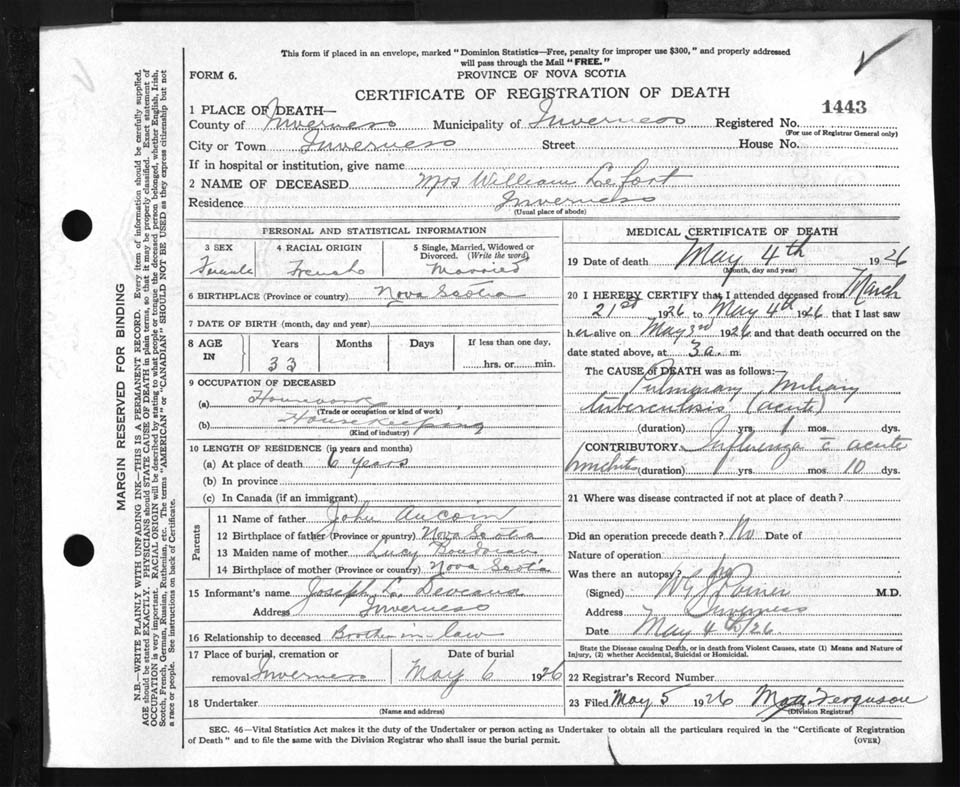 This form if placed in an envelope, marked "Dominion Statistics—Free, penalty for improper use $300," and properly addressed
will pass through the Mail "FREE."
FORM 6.
PROVINCE OF NOVA SCOTIA
CERTIFICATE OF REGISTRATION OF DEATH
1443
1 PLACE OF DEATH—
County of Inverness Municipality of Inverness Registered No.
(For use of Registrar General only)
City or Town Inverness Street House No.
If in hospital or institution, give name
2 NAME OF DECEASED Mrs William LeFort
Residence Inverness
(Usual place of abode)
PERSONAL AND STATISTICAL INFORMATION
3 SEX 4 RACIAL ORIGIN 5 Single, Married, Widowed or
Divorced. (Write the word)
Female French Married
6 BIRTHPLACE (Province or country) Nova Scotia
7 DATE OF BIRTH (month, day and year)
8 AGE IN Years Months Days If less than one day,
33 hrs. or min.
9 OCCUPATION OF DECEASED
(a) Housework
(Trade or occupation or kind of work)
(b) Housekeeping
(Kind of industry)
10 LENGTH OF RESIDENCE (in years and months)
(a) At place of death 6 years
(b) In province
(c) In Canada (if an immigrant)
Parents
11 Name of father John Aucoin
12 Birthplace of father (Province or country) Nova Scotia
13 Maiden name of mother Lucy
14 Birthplace of mother (Province or country) Nova Scotia
15 Informant's name Joseph L.
Address Inverness
16 Relationship to deceased Brother-in-law
17 Place of burial, cremation or Date of burial
removal Inverness May 6 1926
18 Undertaker
(Name and address)
MEDICAL CERTIFICATE OF DEATH
19 Date of death May 4th 1926
(Month, day and year)
20 I HEREBY CERTIFY that I attended deceased from March
21st 1926 to May 4th 1926 that I last saw
her alive on May 3rd 1926 and that death occurred on the
date stated above, at 3 a. m.
The CAUSE OF DEATH was as follows:
Pulmonary Miliary
tuberculosis (acute)
(duration) yrs. 1 mos. dys.
CONTRIBUTORY Influenza c̄ acute
bronchitis (duration) yrs. mos. 10 dys.
21 Where was disease contracted if not at place of death?
Did an operation precede death? No Date of
Nature of operation
Was there an autopsy? No
(Signed) M.D.
Address Inverness
Date May 4th/26.
State the Disease causing Death, or in death from Violent Causes, state (1) Means and Nature of
Injury, (2) whether Accidental, Suicidal or Homicidal.
22 Registrar's Record Number
23 Filed May 5 1926 Ferguson
(Division Registrar)
SEC. 46—Vital Statistics Act makes it the duty of the Undertaker or person acting as Undertaker to obtain all the particulars required in the "Certificate of Registration
of Death" and to file the same with the Division Registrar who shall issue the burial permit. (OVER)
MARGIN RESERVED FOR BINDING
N.B.—WRITE PLAINLY WITH UNFADING INK—THIS IS A PERMANENT RECORD. Every item of information should be carefully supplied.
AGE should be stated EXACTLY. PHYSICIANS should STATE CAUSE OF DEATH in plain terms, so that it may be properly classified. Exact statement of
OCCUPATION is very important. RACIAL ORIGIN will be described by stating to what people or tongue the deceased person belonged, whether English, Irish,
Scotch, French, German, Russian, Ruthenian, etc. The terms "AMERICAN" or "CANADIAN" SHOULD NOT BE USED as they express citizenship but not
a race or people. See instructions on back of Certificate.